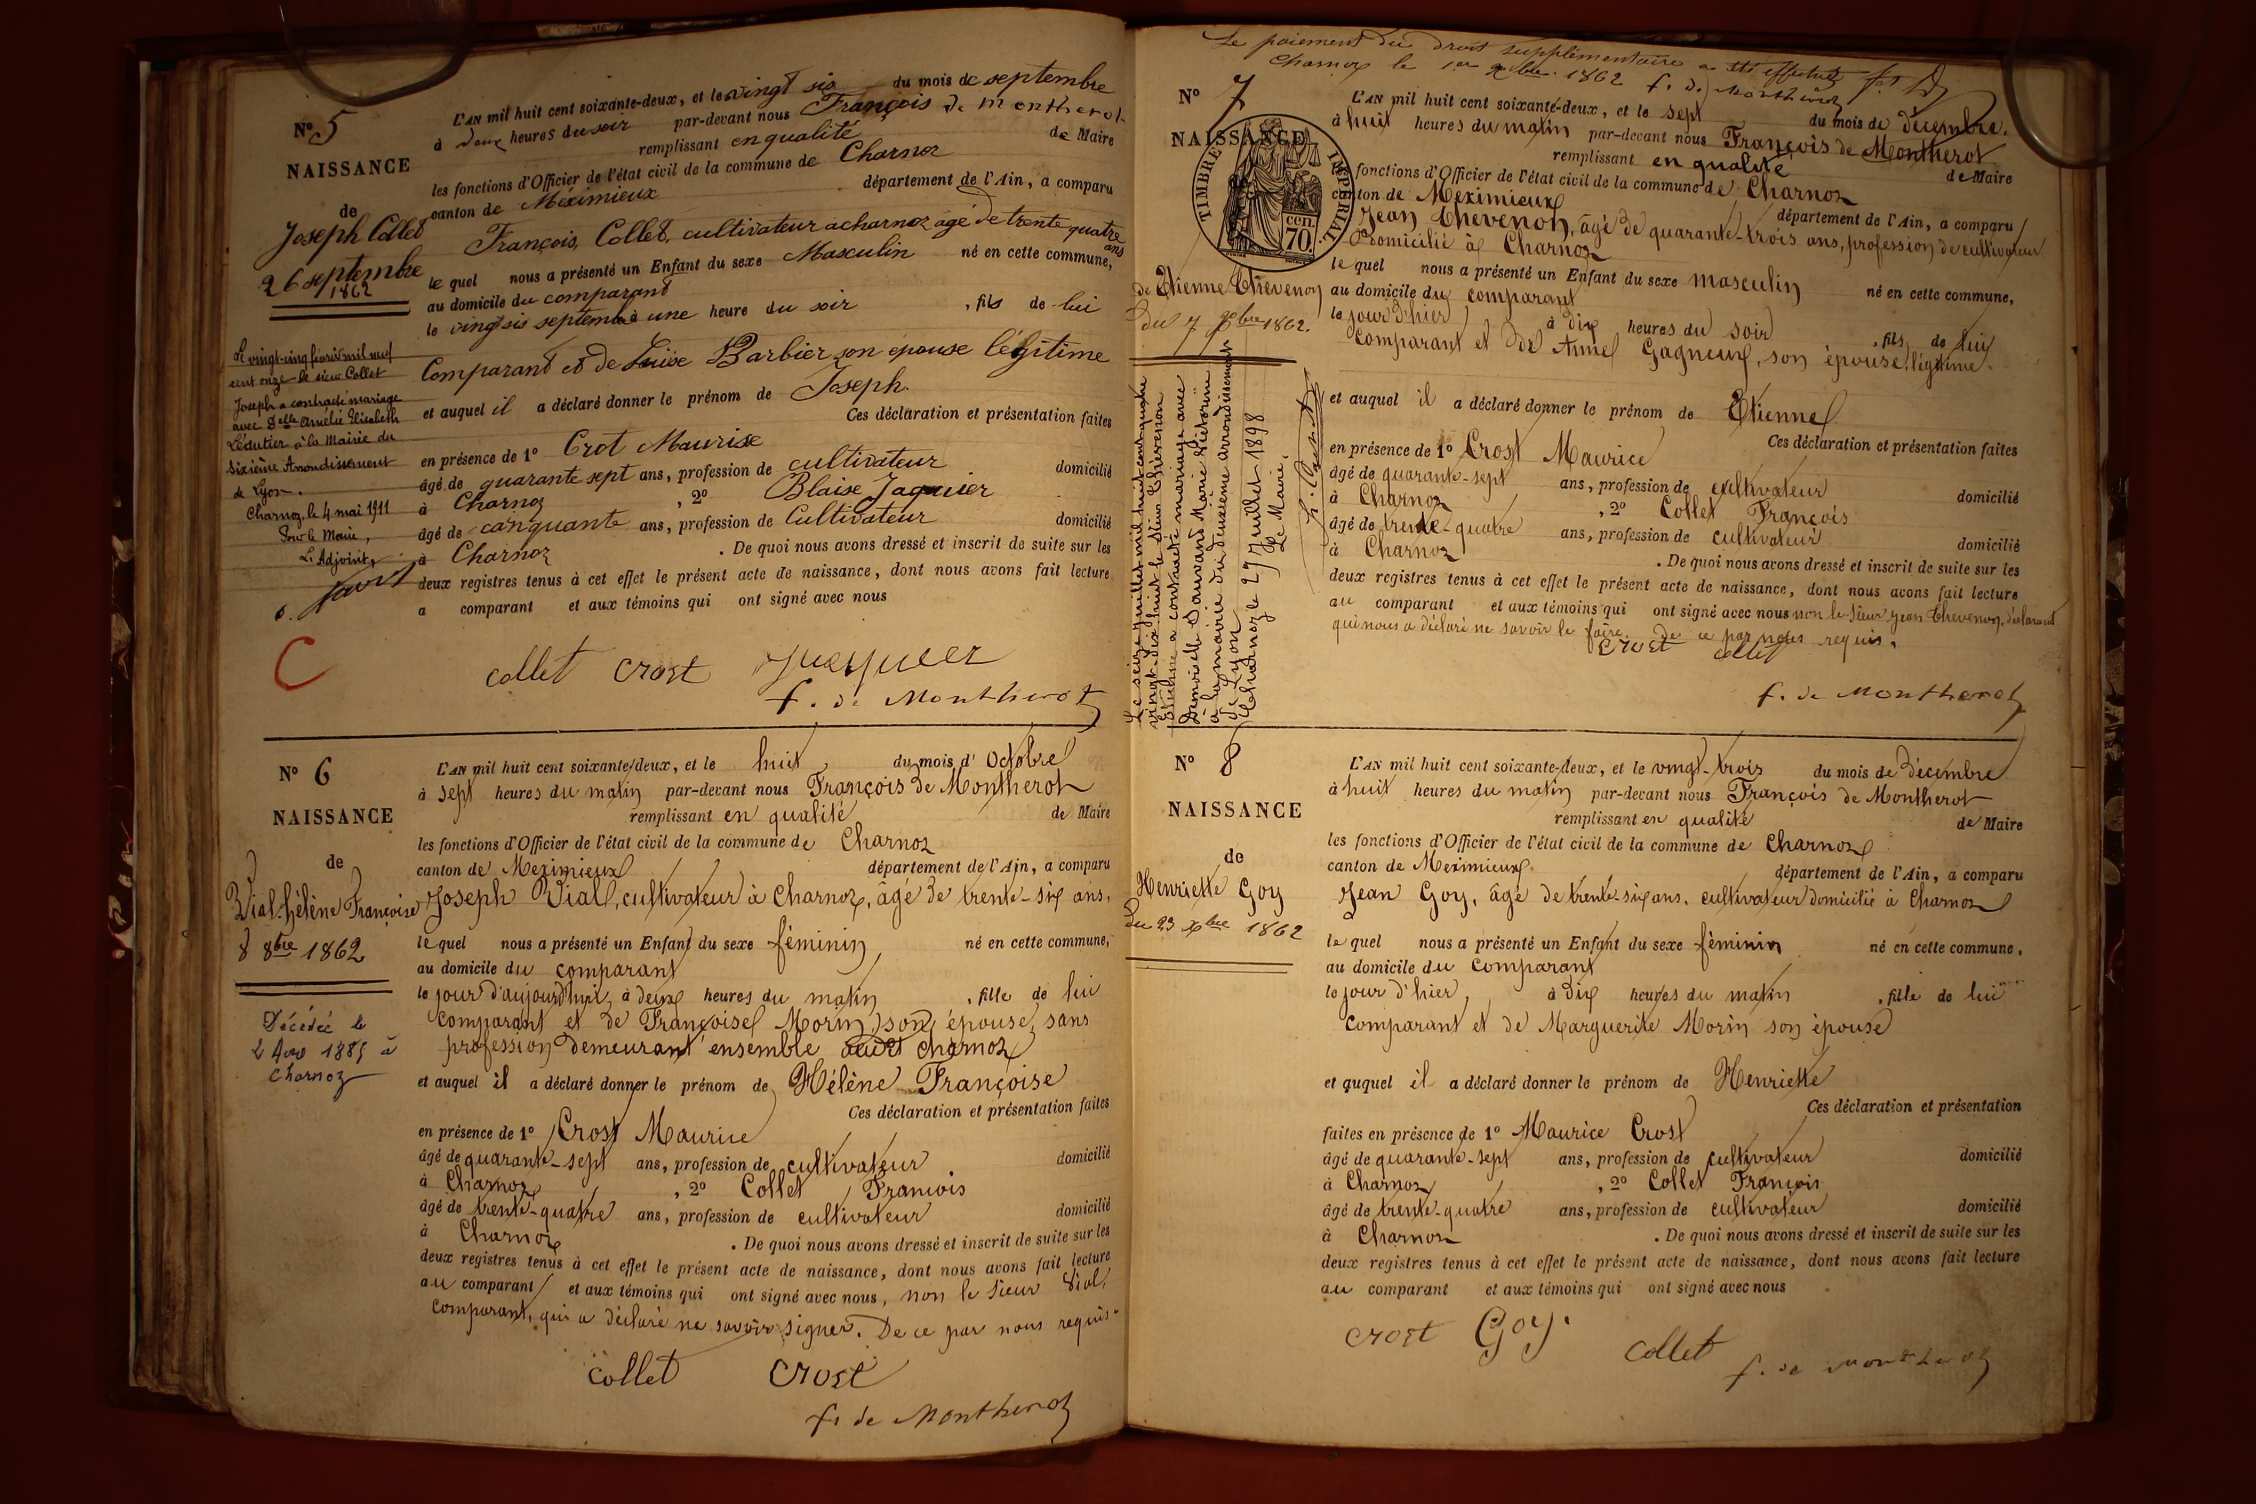 N° 5
NAISSANCE
de
Joseph Collet
26 septembre
1862
Le vingt-cinq février mil neuf
cent onze le sieur Collet
Joseph a contracté mariage
avec Delle Amélie Elisabeth
à la Mairie du
sixième Arrondissement
de Lyon.
Charnoz, le 4 mai 1911
Pour le Maire,
L'Adjoint,
C
L'AN mil huit cent soixante-deux, et le vingt six du mois de septembre
à deux heures du soir par-devant nous François de Montherot
remplissant en qualité de Maire
les fonctions d'Officier de l'état civil de la commune de Charnoz
canton de Méximieux département de l'Ain, a comparu
François Collet, cultivateur a charnoz agé de trente quatre
ans
le quel nous a présenté un Enfant du sexe Masculin né en cette commune,
au domicile du comparant
le vingt sis septembre à une heure du soir , fils de lui
Comparant et de Louise Barbier son epouse légitime
et auquel il a déclaré donner le prénom de Joseph.
Ces déclaration et présentation faites
en présence de 1° Crot Maurise
âgé de quarante sept ans, profession de cultivateur domicilié
à Charnoz , 2° Blaise Jaquier
âgé de canquante ans, profession de Cultivateur domicilié
à Charnoz . De quoi nous avons dressé et inscrit de suite sur les
deux registres tenus à cet effet le présent acte de naissance, dont nous avons fait lecture
a comparant et aux témoins qui ont signé avec nous
Collet Crost Juaquier
f. de Montherot
N° 6
NAISSANCE
de
Vial Hélène Françoise
8 8bre 1862
Décédée le
1885 à
Charnoz
L'AN mil huit cent soixante-deux, et le huit du mois d'Octobre
à sept heures du matin par-devant nous François de Montherot
remplissant en qualité de Maire
les fonctions d'Officier de l'état civil de la commune de Charnoz
canton de Meximieux département de l'Ain, a comparu
Joseph Vial, cultivateur à Charnoz, âgé de trente-six ans,
le quel nous a présenté un Enfant du sexe féminin né en cette commune,
au domicile du comparant
le jour d'aujourd'hui, à deux heures du matin , fille de lui
comparant et de Françoise Morin, son épouse, sans
profession demeurant ensemble audit Charnoz
et auquel il a déclaré donner le prénom de Hélène Françoise
Ces déclaration et présentation faites
en présence de 1° Crost Maurice
âgé de quarante-sept ans, profession de cultivateur domicilié
à Charnoz , 2° Collet François
âgé de trente-quatre ans, profession de cultivateur domicilié
à Charnoz . De quoi nous avons dressé et inscrit de suite sur les
deux registres tenus à cet effet le présent acte de naissance, dont nous avons fait lecture
au comparant et aux témoins qui ont signé avec nous, non le sieur Vial,
comparant, qui a déclaré ne savoir signer. De ce par nous requis.
Collet Crost
f. de Montherot
Le paiement du droit supplémentaire a été effectué
Charnoz le 1er xbre 1862 f. de Montherot
N° 7
NAISSANCE
TIMBRE IMPÉRIAL.
70 cen.
de Etienne Thévenon
du 7 xbre 1862.
Le seize Juillet mil huit cent quatre
vingt-dix huit le Sieur Thévenon
Etienne a contracté mariage avec
Demoiselle Sauvand Marie Victorine
à la mairie du deuxième arrondissement
de Lyon
Charnoz le 27 Juillet 1898
Le Maire,
L'AN mil huit cent soixante-deux, et le sept du mois de décembre.
à huit heures du matin par-devant nous François de Montherot
remplissant en qualité de Maire
fonctions d'Officier de l'état civil de la commune de Charnoz
canton de Meximieux département de l'Ain, a comparu
Jean Thevenon, âgé de quarante-trois ans, profession de cultivateur
Domicilié à Charnoz
le quel nous a présenté un Enfant du sexe masculin né en cette commune,
au domicile du comparant
le jour d'hier à dix heures du soir , fils de lui
comparant et de Anne Gagneux, son épouse légitime.
et auquel il a déclaré donner le prénom de Etienne
Ces déclaration et présentation faites
en présence de 1° Crost Maurice
âgé de quarante-sept ans, profession de cultivateur domicilié
à Charnoz , 2° Collet François
âgé de trente-quatre ans, profession de cultivateur domicilié
à Charnoz . De quoi nous avons dressé et inscrit de suite sur les
deux registres tenus à cet effet le présent acte de naissance, dont nous avons fait lecture
au comparant et aux témoins qui ont signé avec nous non le Sieur Jean Thevenon, déclarant
qui nous a déclaré ne savoir le faire. de ce par nous requis.
Crost Collet
f. de Montherot
N° 8
NAISSANCE
de
Henriette Goy
du 23 xbre 1862
L'AN mil huit cent soixante-deux, et le vingt-trois du mois de Décembre
à huit heures du matin par-devant nous François de Montherot
remplissant en qualité de Maire
les fonctions d'Officier de l'état civil de la commune de Charnoz
canton de Meximieux département de l'Ain, a comparu
Jean Goy, âgé de trente-six ans, cultivateur domicilié à Charnoz
le quel nous a présenté un Enfant du sexe féminin né en cette commune,
au domicile du comparant
le jour d'hier, à dix heures du matin , fille de lui
comparant et de Marguerite Morin son épouse
et auquel il a déclaré donner le prénom de Henriette
Ces déclaration et présentation
faites en présence de 1° Maurice Crost
âgé de quarante-sept ans, profession de cultivateur domicilié
à Charnoz , 2° Collet François
âgé de trente-quatre ans, profession de cultivateur domicilié
à Charnoz . De quoi nous avons dressé et inscrit de suite sur les
deux registres tenus à cet effet le présent acte de naissance, dont nous avons fait lecture
au comparant et aux témoins qui ont signé avec nous
Crost Goy.
Collet f. de Montherot